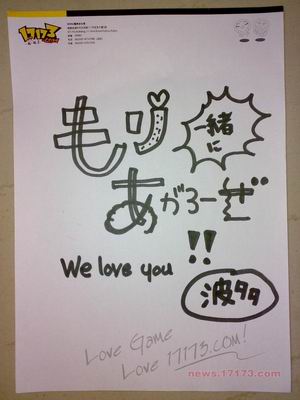 17173
.com
もり
一緒に
あがろーぜ
!!
We love you
波多
Love Game
Love 17173.COM!
news.17173.com